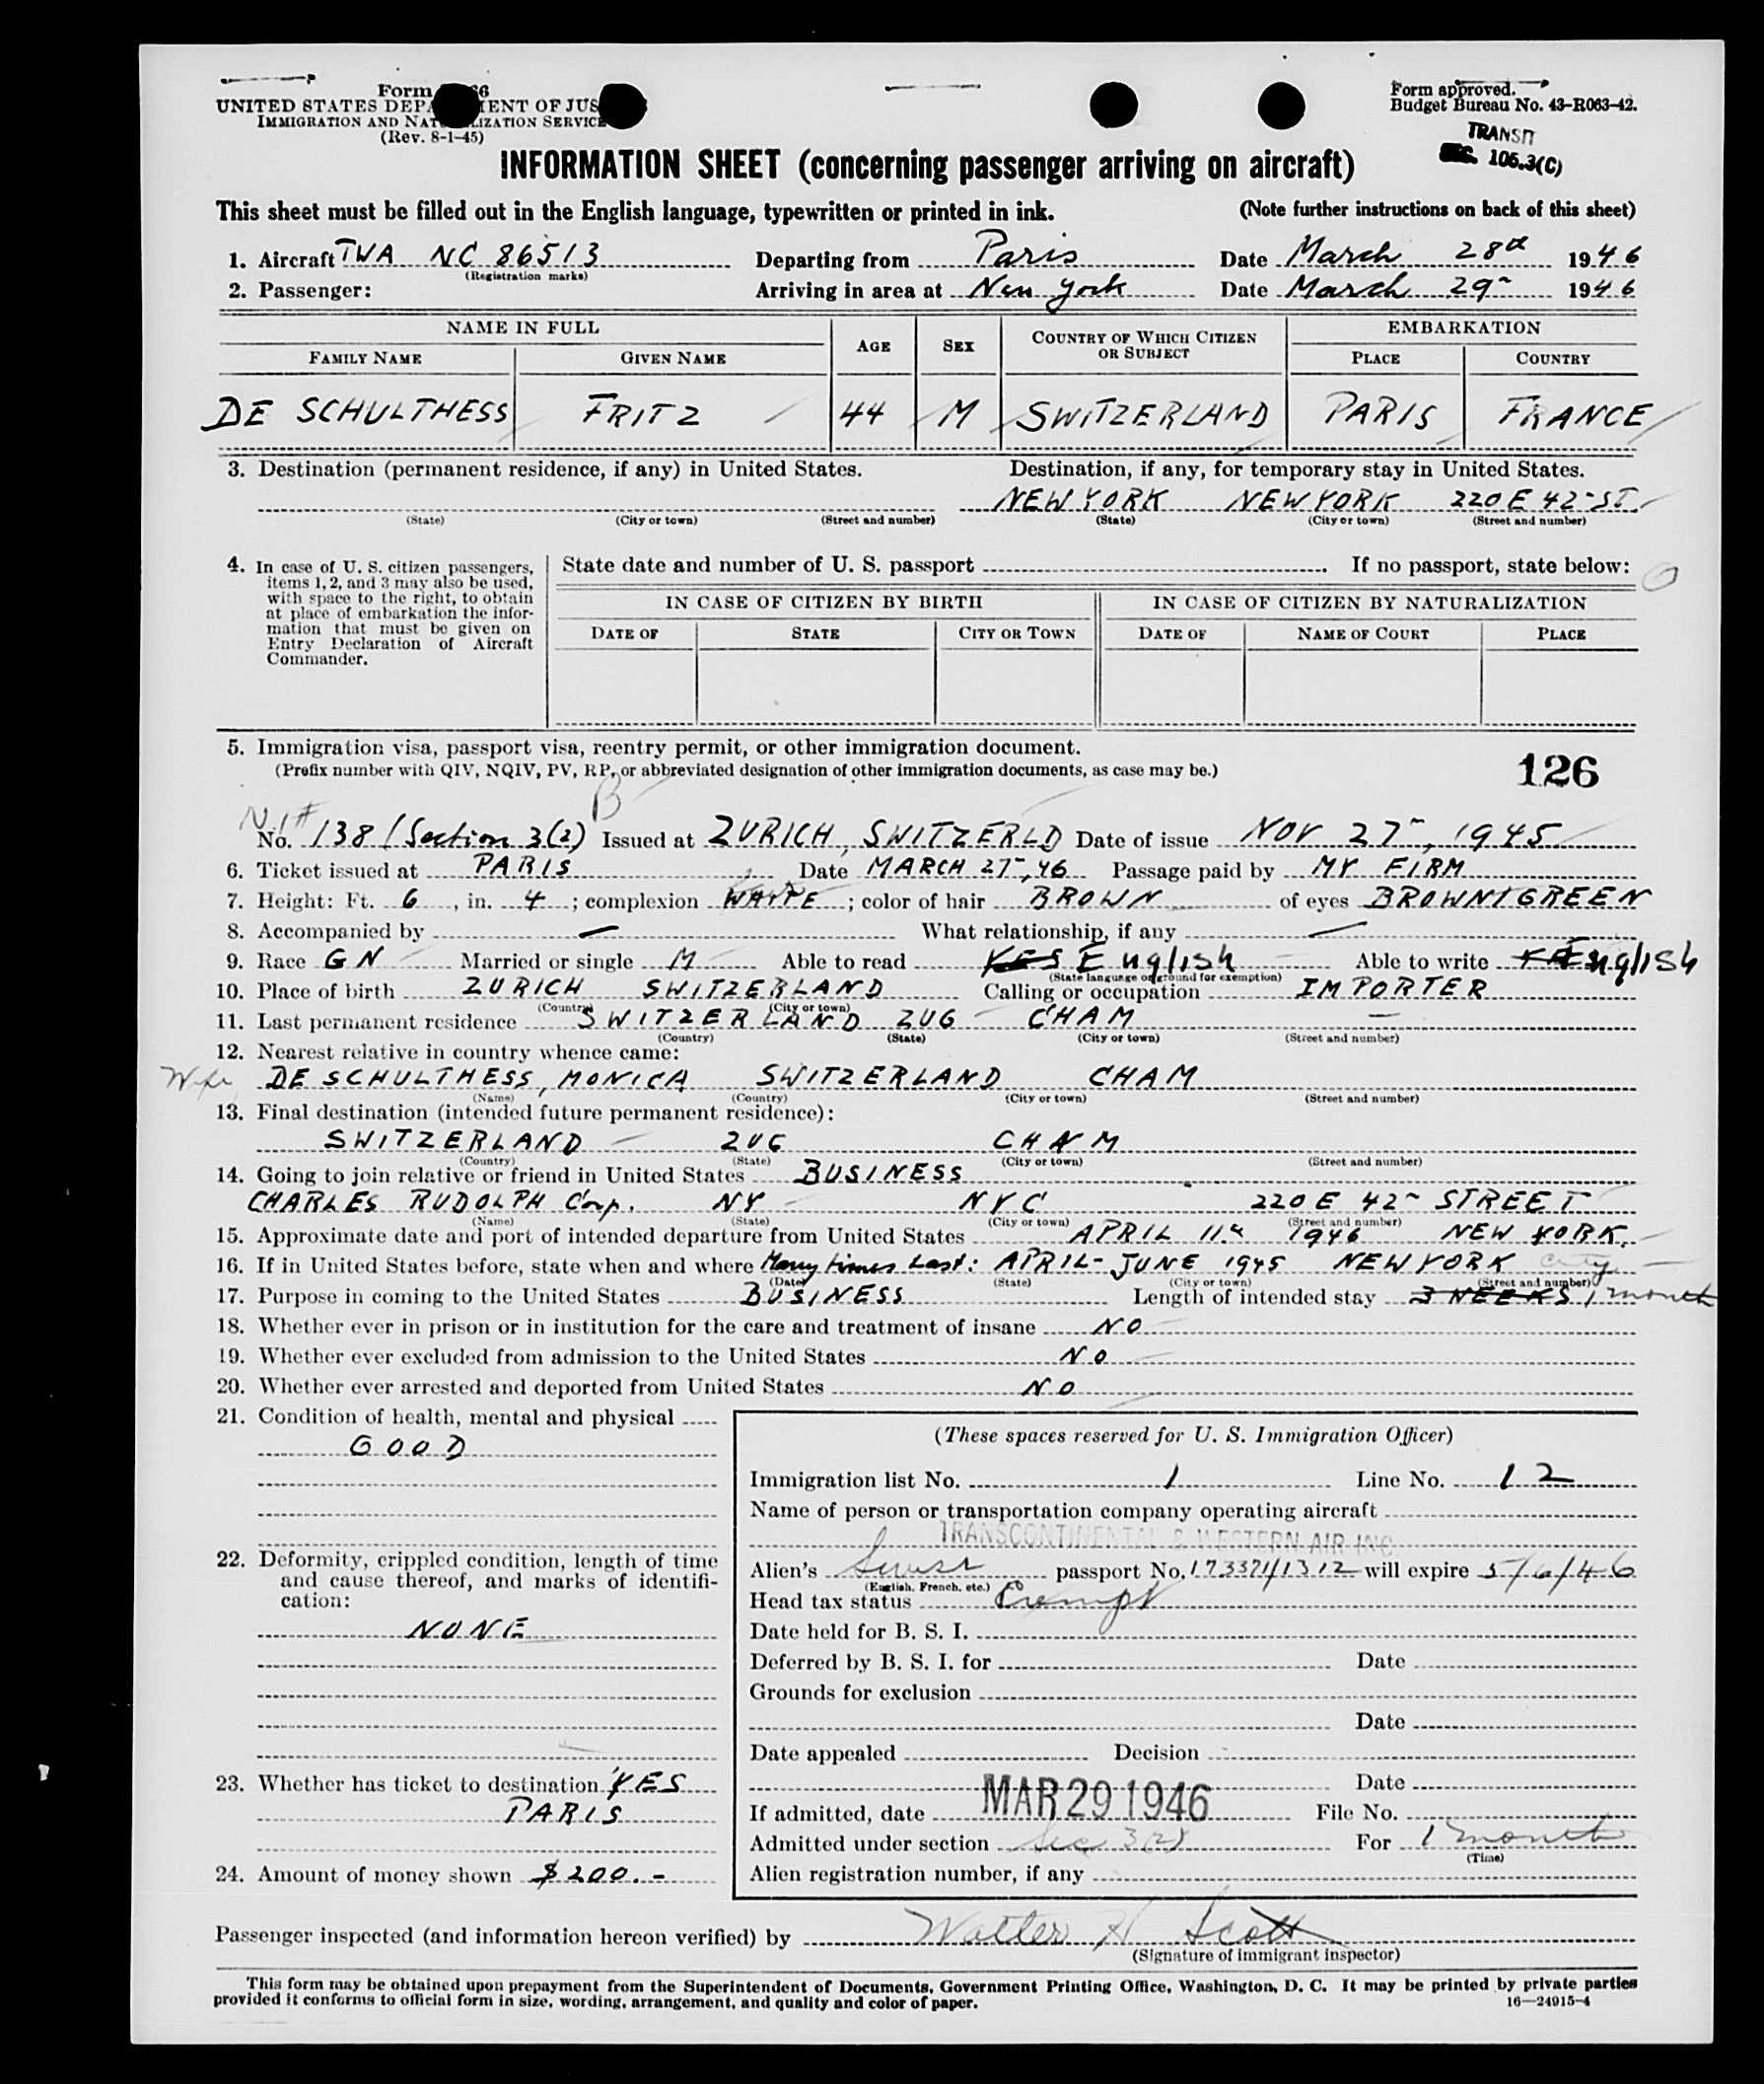 Form 66
UNITED STATES DEPA ENT OF JUS
IMMIGRATION AND NAT LIZATION SERVICE
(Rev. 8-1-45)
Form approved.
Budget Bureau No. 43-R063-42.
TRANSIT
SEC. 106.3(C)
INFORMATION SHEET (concerning passenger arriving on aircraft)
This sheet must be filled out in the English language, typewritten or printed in ink. (Note further instructions on back of this sheet)
1. Aircraft TWA NC 86513 Departing from Paris Date March 28th 1946
(Registration marks)
2. Passenger: Arriving in area at New York Date March 29 1946
NAME IN FULL AGE SEX COUNTRY OF WHICH CITIZEN OR SUBJECT EMBARKATION
FAMILY NAME GIVEN NAME PLACE COUNTRY
DE SCHULTHESS FRITZ 44 M SWITZERLAND PARIS FRANCE
3. Destination (permanent residence, if any) in United States. Destination, if any, for temporary stay in United States.
NEW YORK NEW YORK 220 E 42 ST.
(State) (City or town) (Street and number) (State) (City or town) (Street and number)
4. In case of U. S. citizen passengers, items 1, 2, and 3 may also be used, with space to the right, to obtain at place of embarkation the information that must be given on Entry Declaration of Aircraft Commander.
State date and number of U. S. passport . If no passport, state below:
IN CASE OF CITIZEN BY BIRTH IN CASE OF CITIZEN BY NATURALIZATION
DATE OF STATE CITY OR TOWN DATE OF NAME OF COURT PLACE
5. Immigration visa, passport visa, reentry permit, or other immigration document.
(Prefix number with QIV, NQIV, PV, RP, or abbreviated designation of other immigration documents, as case may be.)
126
B
No. 138 / Section 3(2) Issued at ZURICH, SWITZERLD Date of issue NOV 27, 1945
6. Ticket issued at PARIS Date MARCH 27, 46 Passage paid by MY FIRM
7. Height: Ft. 6, in. 4; complexion WHITE; color of hair BROWN of eyes BROWN/GREEN
8. Accompanied by — What relationship, if any —
9. Race GN Married or single M Able to read YES English Able to write English
(State language or ground for exemption)
10. Place of birth ZURICH SWITZERLAND Calling or occupation IMPORTER
(Country) (City or town)
11. Last permanent residence SWITZERLAND ZUG CHAM —
(Country) (State) (City or town) (Street and number)
12. Nearest relative in country whence came:
Wife DE SCHULTHESS, MONICA SWITZERLAND CHAM
(Name) (Country) (City or town) (Street and number)
13. Final destination (intended future permanent residence):
SWITZERLAND — ZUG CHAM
(Country) (State) (City or town) (Street and number)
14. Going to join relative or friend in United States BUSINESS
CHARLES RUDOLPH Corp. NY NYC 220 E 42 STREET
(Name) (State) (City or town) (Street and number)
15. Approximate date and port of intended departure from United States APRIL 11th 1946 NEW YORK.
16. If in United States before, state when and where Many times Last: APRIL-JUNE 1945 NEW YORK City
(Date) (State) (City or town) (Street and number)
17. Purpose in coming to the United States BUSINESS Length of intended stay 3 WEEKS 1 month
18. Whether ever in prison or in institution for the care and treatment of insane NO
19. Whether ever excluded from admission to the United States NO
20. Whether ever arrested and deported from United States NO
21. Condition of health, mental and physical
GOOD
22. Deformity, crippled condition, length of time and cause thereof, and marks of identification:
NONE
23. Whether has ticket to destination YES
PARIS
24. Amount of money shown $200.-
(These spaces reserved for U. S. Immigration Officer)
Immigration list No. 1 Line No. 12
Name of person or transportation company operating aircraft
TRANSCONTINENTAL & WESTERN AIR INC
Alien's Swiss passport No. 173371/1312 will expire 5/6/46
(English, French, etc.)
Head tax status Exempt
Date held for B. S. I.
Deferred by B. S. I. for Date
Grounds for exclusion
Date
Date appealed Decision
Date
If admitted, date MAR 29 1946 File No.
Admitted under section Sec 3(2) For 1 month
(Time)
Alien registration number, if any
Passenger inspected (and information hereon verified) by Walter H Scott
(Signature of immigrant inspector)
This form may be obtained upon prepayment from the Superintendent of Documents, Government Printing Office, Washington, D. C. It may be printed by private parties
provided it conforms to official form in size, wording, arrangement, and quality and color of paper.
16—24915-4